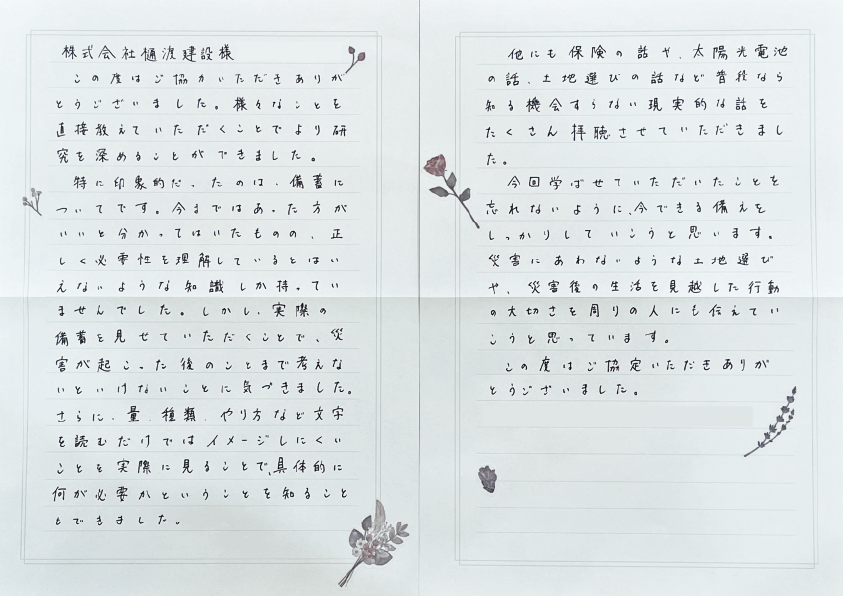 株式会社樋渡建設様
この度はご協力いただきありが
とうございました。様々なことを
直接教えていただくことでより研
究を深めることができました。
特に印象的だったのは、備蓄に
ついてです。今まではあった方が
いいと分かってはいたものの、正
しく必要性を理解しているとはい
えないような知識しか持ってい
ませんでした。しかし、実際の
備蓄を見せていただくことで、災
害が起こった後のことまで考えな
いといけないことに気づきました。
さらに、量、種類、やり方など文字
を読むだけではイメージしにくい
ことを実際に見ることで、具体的に
何が必要かということを知ること
もできました。
他にも保険の話や、太陽光電池
の話、土地選びの話など普段なら
知る機会すらない現実的な話を
たくさん拝聴させていただきまし
た。
今回学ばせていただいたことを
忘れないように、今できる備えを
しっかりしていこうと思います。
災害にあわないような土地選び
や、災害後の生活を見越した行動
の大切さを周りの人にも伝えてい
こうと思っています。
この度はご協定いただきありが
とうございました。